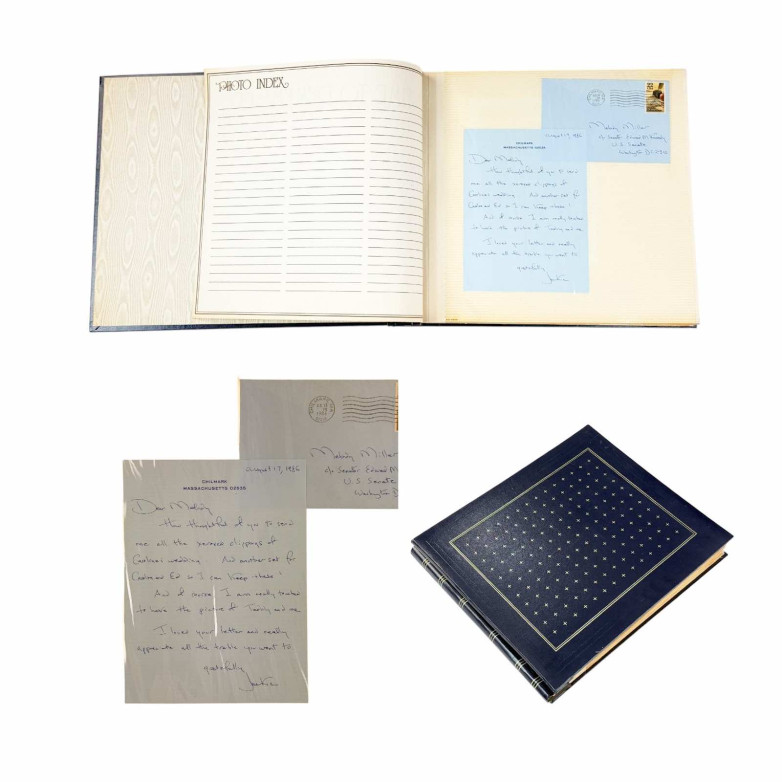 PHOTO INDEX
August 17, 1986
Melody Miller
c/o Senator Edward M. Kennedy
U.S. Senate
Washington D.C.
CHILMARK
MASSACHUSETTS 02535
Dear Melody
How thoughtful of you to send
me all the clippings of
Caroline's wedding. And another set for
Ed so I can keep these!
And of course I am really touched
to have the picture of Teddy and me
I loved your letter and really
appreciate all the trouble you went to
gratefully
Jackie
August 17, 1986
CHILMARK
MASSACHUSETTS 02535
Melody Miller
c/o Senator Edward M
U.S. Senate
Washington D
Dear Melody
How thoughtful of you to send
me all the clippings of
Caroline's wedding. And another set for
Ed so I can keep these!
And of course I am really touched
to have the picture of Teddy and me
I loved your letter and really
appreciate all the trouble you went to
gratefully
Jackie